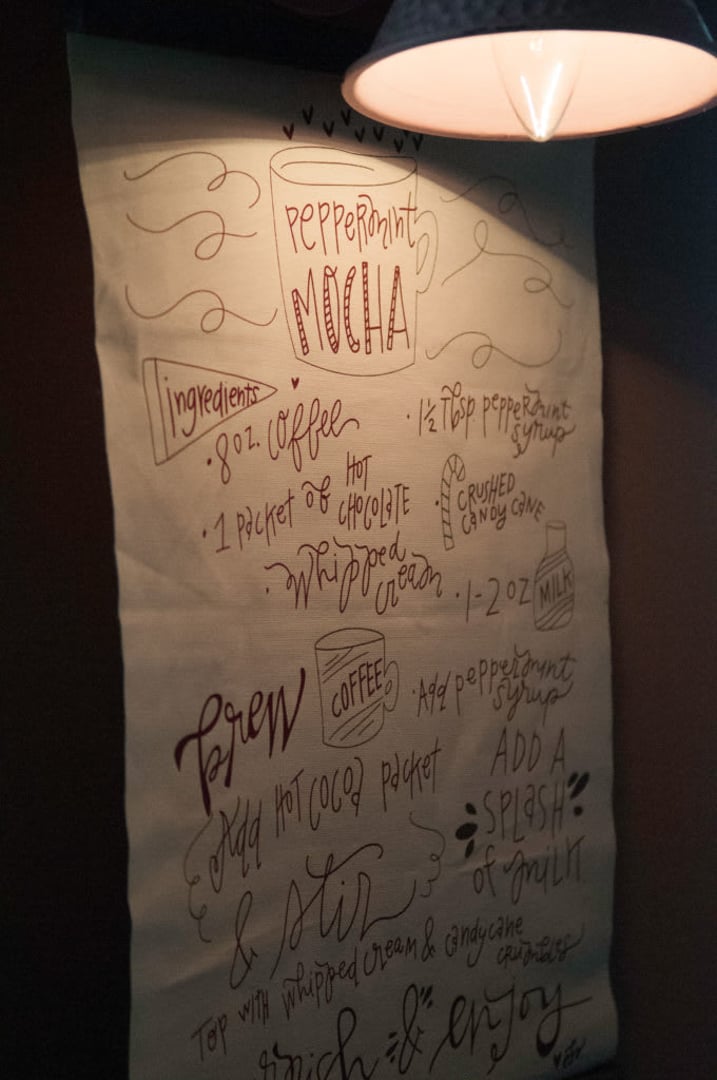 peppermint
MOCHA
ingredients
· 8 oz. coffee
· 1 packet of HOT
CHOCOLATE
· Whipped
cream
· 1½ Tbsp peppermint
syrup
· CRUSHED
CANDY CANE
· 1-2 oz MILK
brew COFFEE
· Add peppermint
syrup
Add HOT COCOA packet
& stir
ADD A
SPLASH
of MILK
TOP WITH whipped cream & candy cane
crumbles
& enjoy